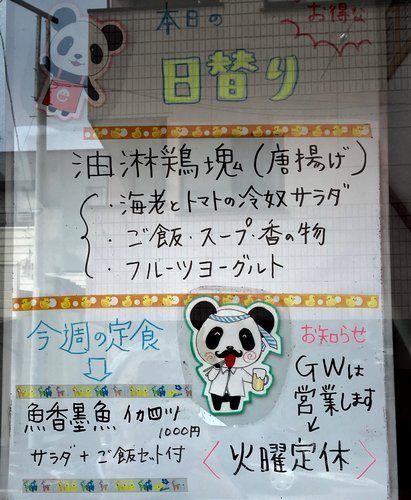 本日の
お得な
日替り
油淋鶏塊(唐揚げ)
・海老とトマトの冷奴サラダ
・ご飯・スープ・香の物
・フルーツヨーグルト
今週の定食
魚香墨魚 イカ四ツ
1000円
サラダ+ご飯セット付
お知らせ
GWは
営業します
火曜定休